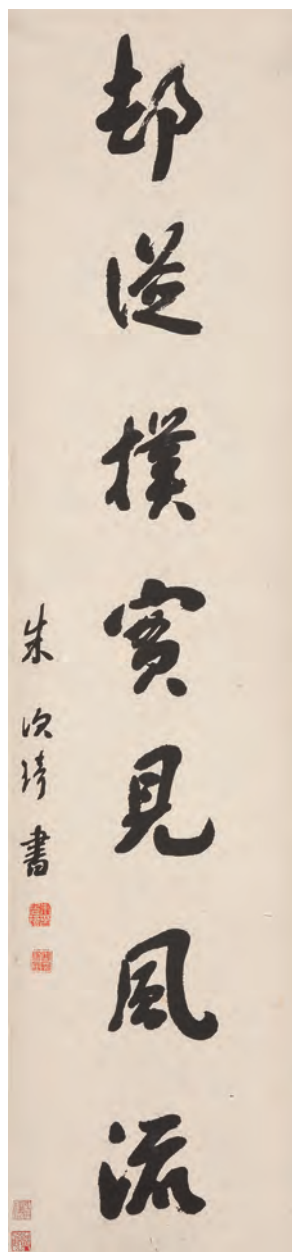 却從樸實見風流
朱次琦書